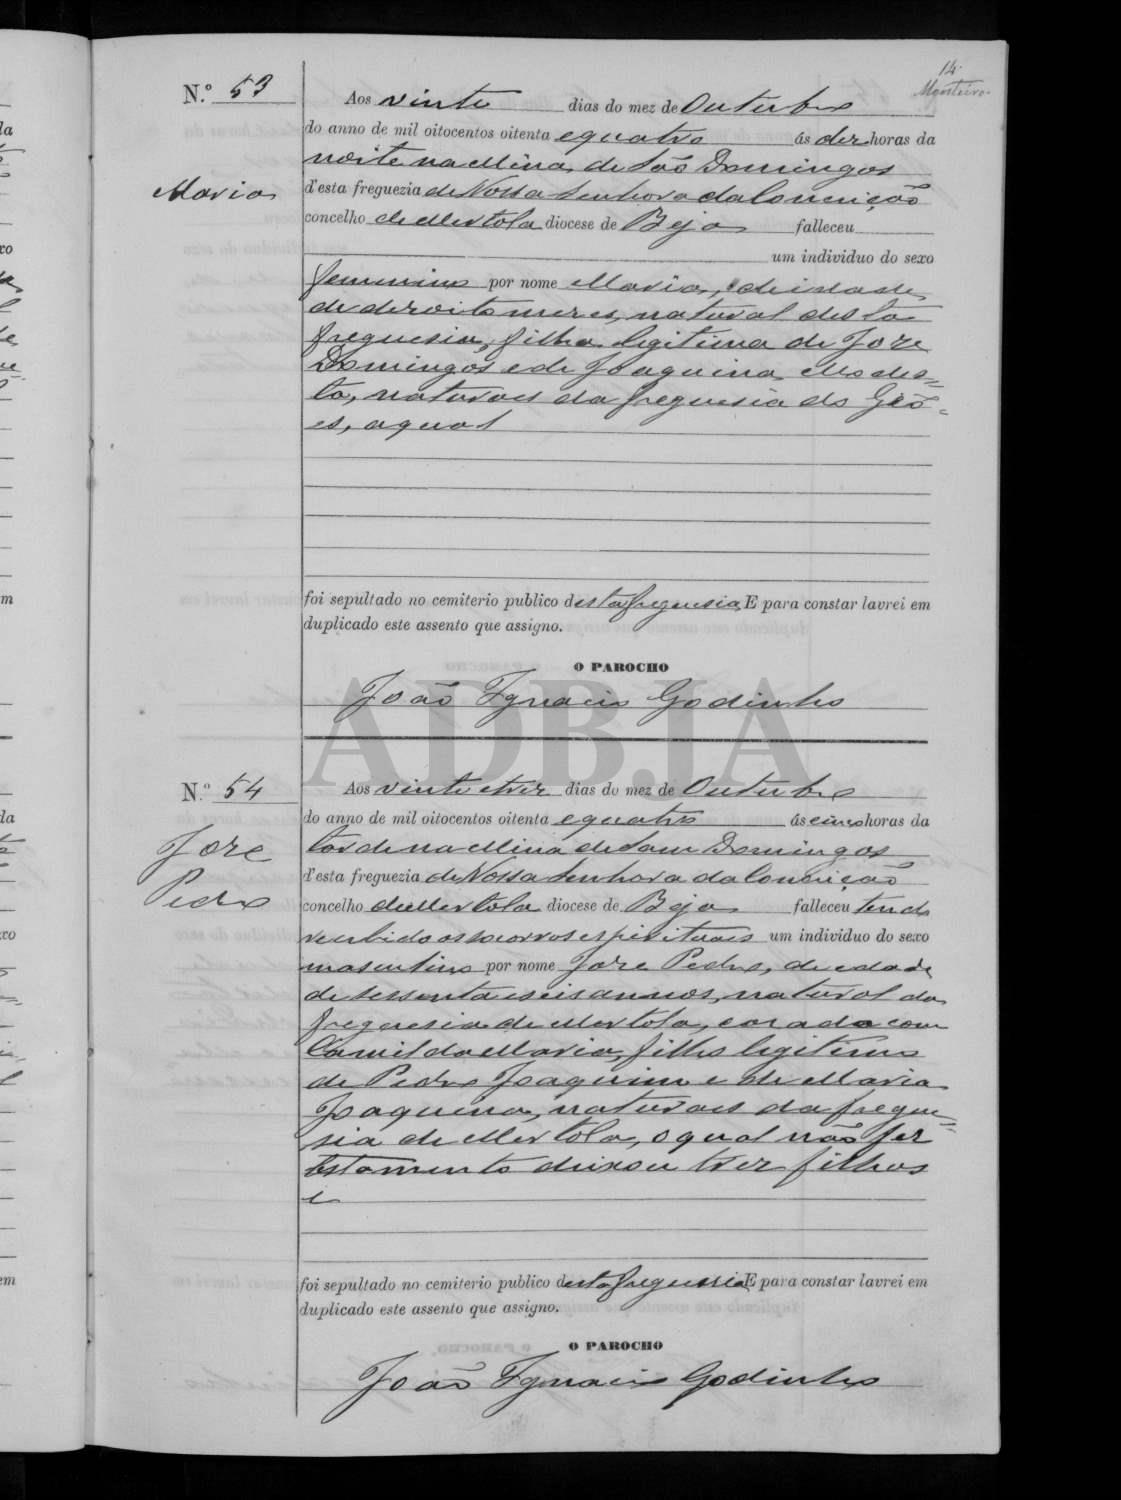 14.
Monteiro
N.º 53
Maria
Aos vinte dias do mez de Outubro
do anno de mil oitocentos oitenta e quatro ás dez horas da
noite na Mina de São Domingos
d'esta freguezia de Nossa Senhora da Conceição
concelho de Mertola diocese de Beja falleceu
um individuo do sexo
femenino por nome Maria, de idade
de dezoito mezes, natural desta
freguesia, filha legitima de Joze
Domingos e de Joaquina Modes=
ta, naturaes da freguesia do Giõ=
es, a qual
foi sepultado no cemiterio publico desta freguesia E para constar lavrei em
duplicado este assento que assigno.
O PAROCHO
João Ignacio Godinho
ADBJA
N.º 54
Joze
Pedro
Aos vinte e trez dias do mez de Outubro
do anno de mil oitocentos oitenta e quatro ás cinco horas da
tarde na Mina de Sam Domingos
d'esta freguezia de Nossa Senhora da Conceição
concelho de Mertola diocese de Beja falleceu tendo
recebido os socorros espirituaes um individuo do sexo
masculino por nome Joze Pedro, de edade
de sessenta e seis annos, natural da
freguesia de Mertola, cazado com
Camilda Maria, filho legitimo
de Pedro Joaquim e de Maria
Joaquina, naturaes da fregue=
sia de Mertola, o qual não fez
testamento deixou trez filhos
e
foi sepultado no cemiterio publico desta freguesia E para constar lavrei em
duplicado este assento que assigno.
O PAROCHO
João Ignacio Godinho